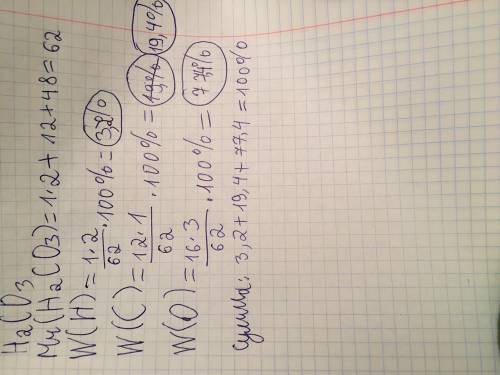 H2CO3
Mr(H2CO3)=1·2+12+48=62
W(H)=1·2/62·100%=3,2%
W(C)=12·1/62·100%=19,4%
W(O)=16·3/62·100%=77,4%
Сумма: 3,2+19,4+77,4=100%